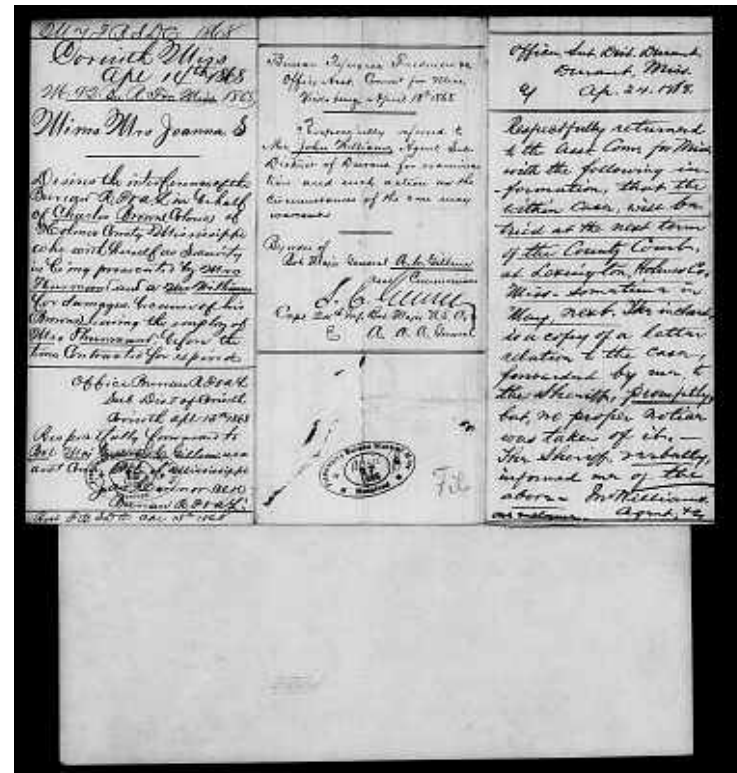 Corinth Miss
Apl 14th 1868
Mims Mrs Joanna S
Desires the interference of the
Bureau R F & A L in behalf
of Charles Brown Colored of
Holmes County Mississippi
who with herself as Security
is being prosecuted by Mrs
and a Mrs Williams
for damages because of his
Brown leaving the employ of
Mrs before the
time Contracted for expired
Office Bureau R F & A L
Sub Dist of Corinth
Corinth Apl 14th 1868
Respectfully forwarded to
Bvt Maj
of Mississippi
Bureau R F & A L
Bureau Refugees Freedmen &c
Office Asst. Comr for Miss.
Vicksburg April 18th 1868
Respectfully referred to
Mr John Williams, Agent Sub
District of Durant for examina
tion and such action as the
circumstances of the case may
warrant
By order of
Bvt Major General A. C. Gillem
Asst Commissioner
Capt 24th Inf. Bvt Major U.S.A.
A. A. A. General
File
Office Sub Dist. Durant
Durant, Miss.
Ap. 24. 1868.
Respectfully returned
to the Asst Com for Miss
with the following in-
formation, that the
within case, will be
tried at the next term
of the County Court,
at Lexington, Holmes Co,
Miss. sometime in
May, next. The inclosed
is a copy of a letter
relation to the case,
forwarded by me to
the Sheriff, promptly,
but, no proper notice
was taken of it.—
The Sheriff, verbally,
informed me of the
above. Jno Williams
Agent, &c